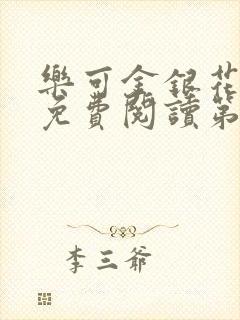 樂可金銀花
免費閱讀第
李三爺